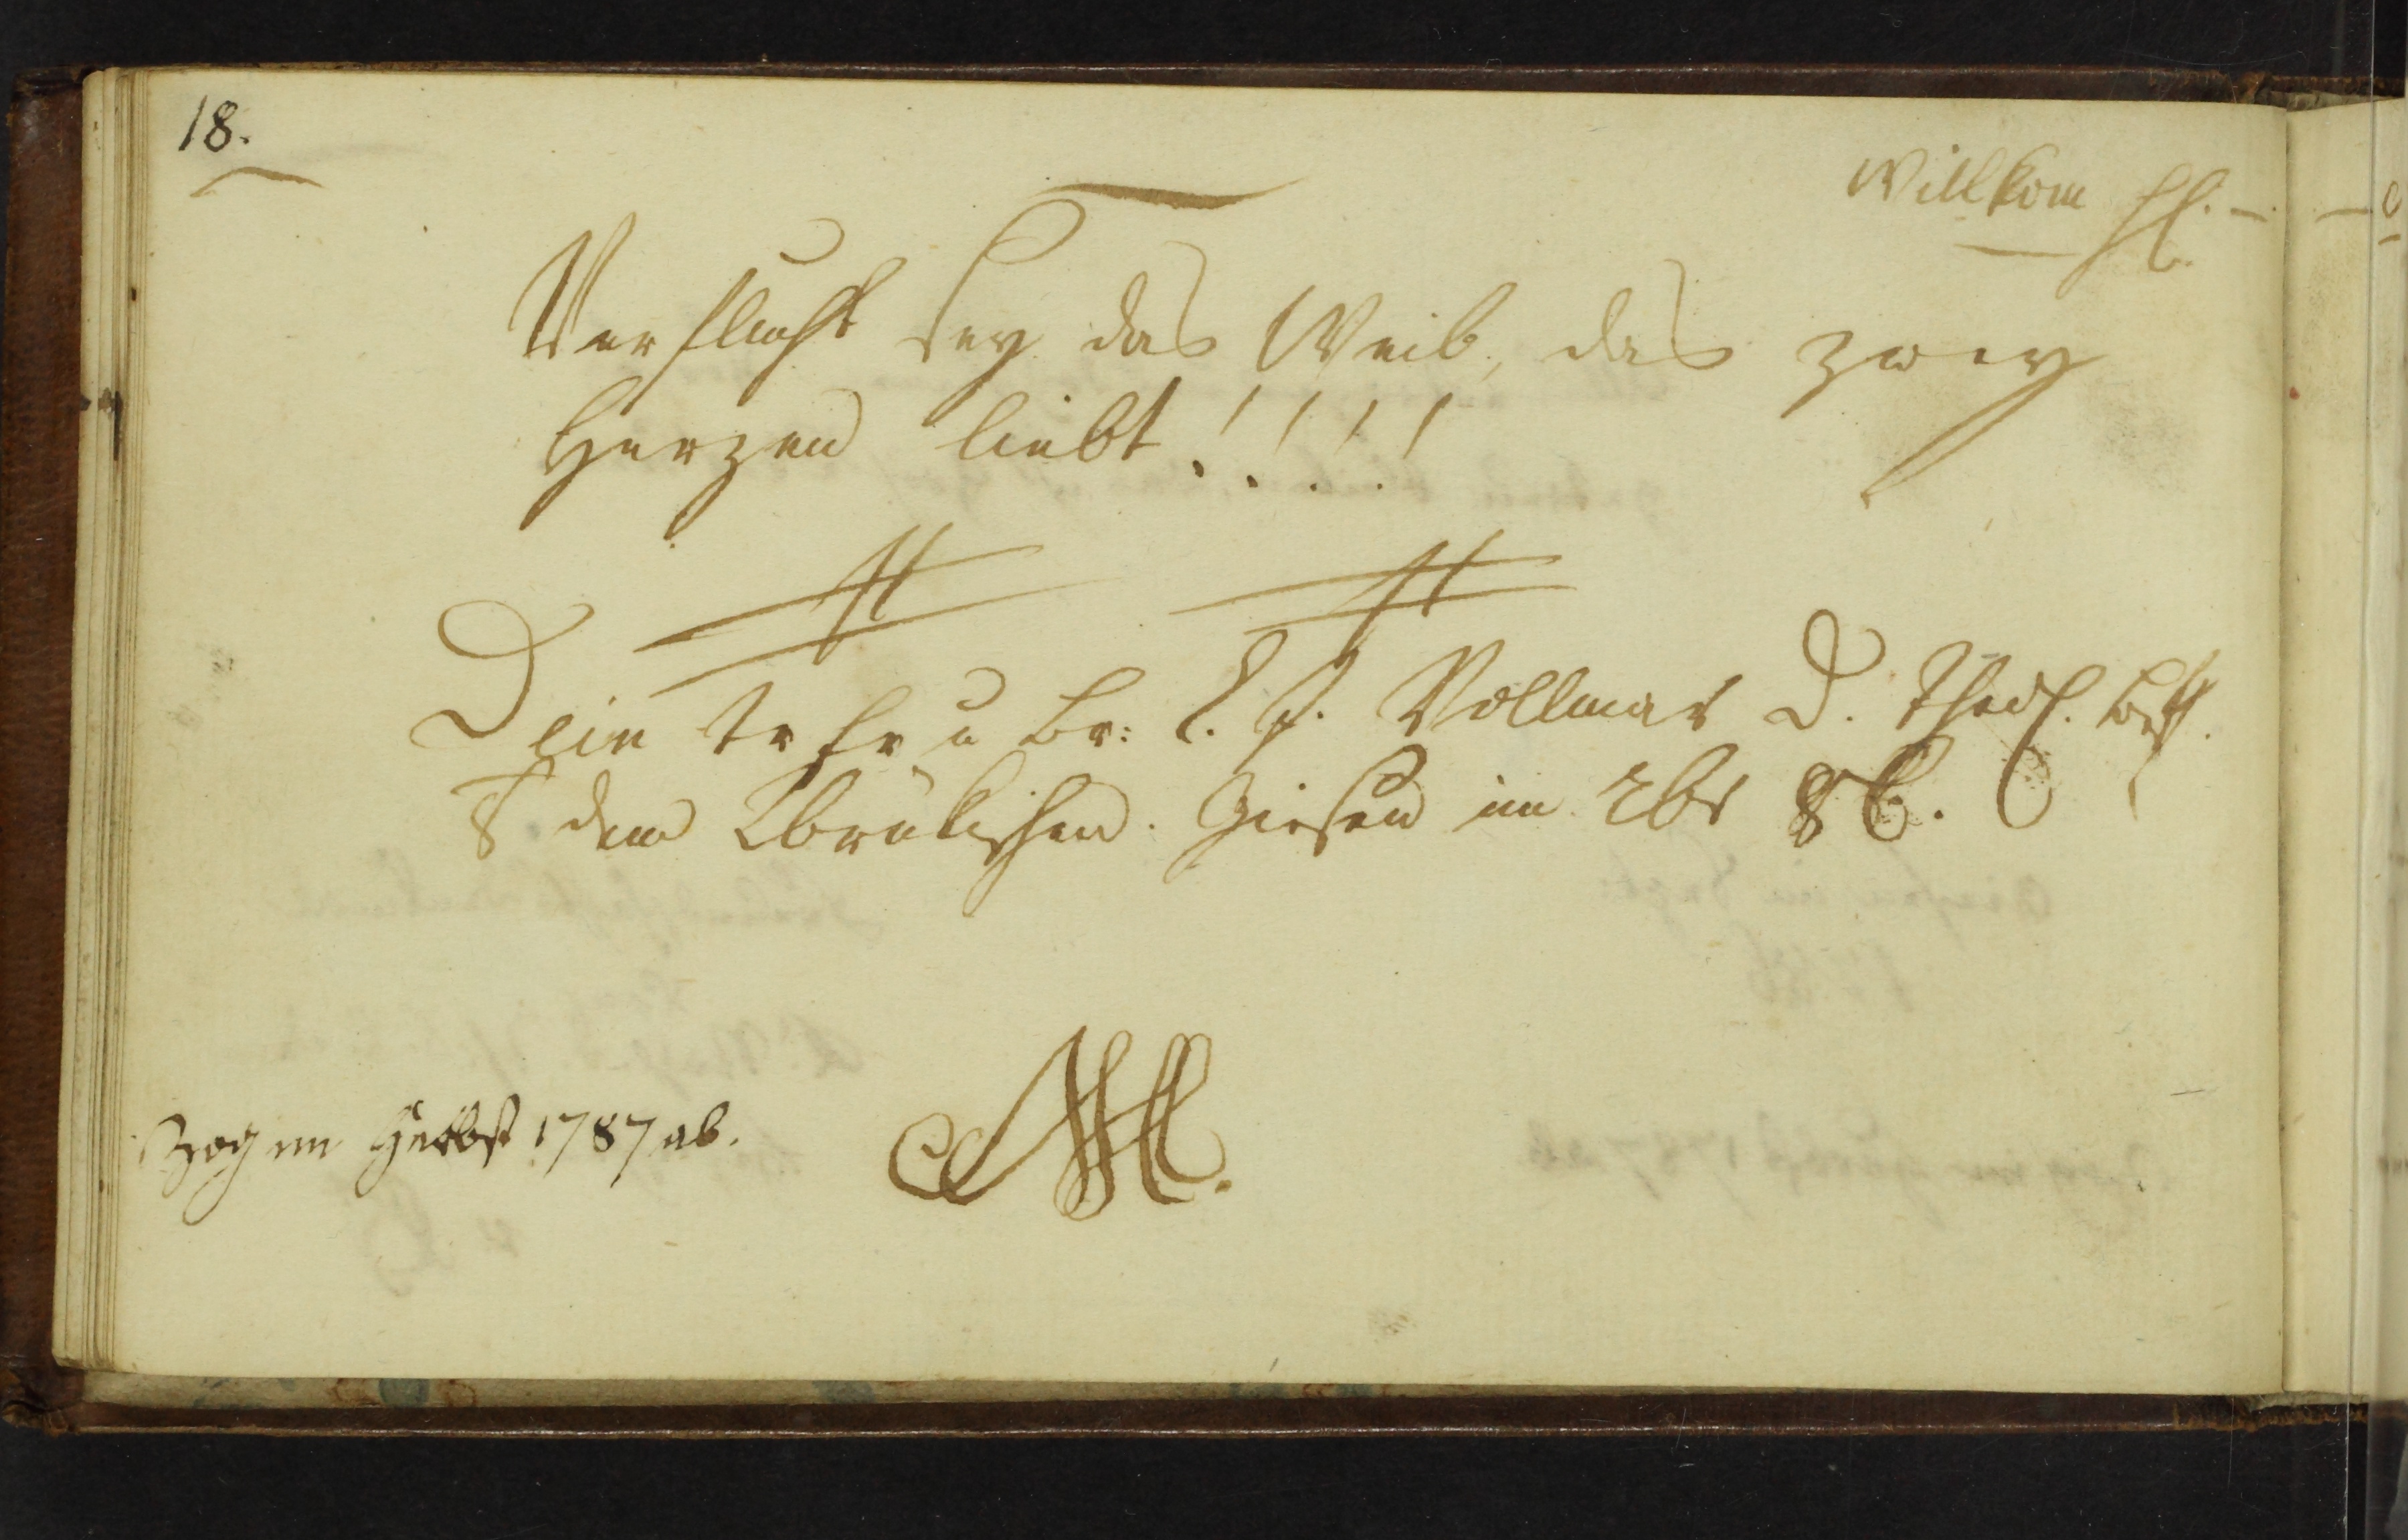 18.
Willkom
Verflucht sey das Weib, das zwey
Herzen liebt!!!!
Dein tr fr u br: L. P. Vollmar d. Theol. Bef.
dem Zbrükischen. Giesen im 7br 86.
Zog im Herbst 1787 ab.